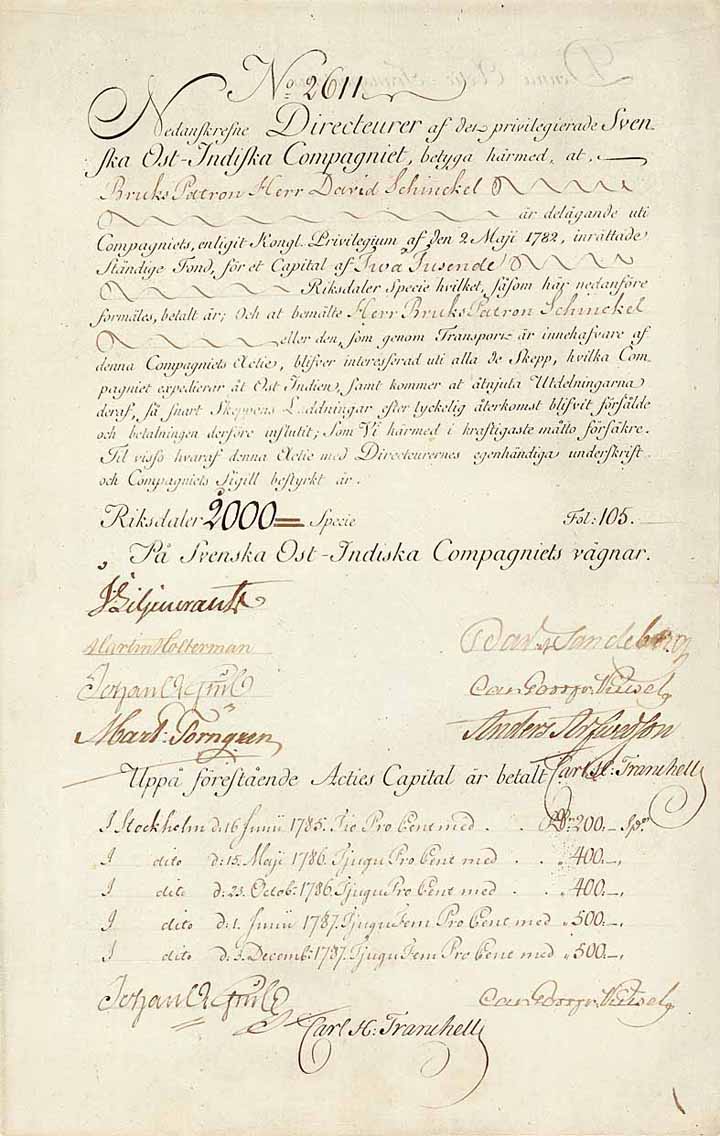 No. 2611
Nedanskrefne Directeurer af den privilegierade Sven-
ska Ost-Indiska Compagniet, betyga härmed, at
Bruks Patron Herr David Schinckel
är delägande uti
Compagniets, enligit Kongl. Privilegium af den 2 Maji 1782, inrättade
Ständige Fond, för et Capital af Twå Tusende
Riksdaler Specie hvilket, såsom här nedanföre
förmäles, betalt är; Och at bemälte Herr Bruks Patron Schinckel
eller den, som genom Transport är innehafvare af
denna Compagniets Actie, blifver interesserad uti alla de Skepp, hvilka Com-
pagniet expedierar åt Ost Indien, samt kommer at åtnjuta Utdelningarna
deraf, så snart Skeppens Laddningar efter lyckelig återkomst blifvit försålde
och betalningen derföre influtit; Som Vi härmed i kraftigaste måtto försäkre.
Til visso hvaraf denna Actie med Directeurernes egenhändiga underskrift
och Compagniets Sigill bestyrkt är.
Riksdaler 2000 Specie Fol: 105.
På Svenska Ost-Indiska Compagniets vägnar.
Martin Holterman
Mart: Törngren Anders Arfwedson
Uppå förestående Acties Capital är betalt Carl H:
I Stockholm d: 16 Junii 1785. Tio Pro Cent med . . Rdr 200.—. Spe
I dito d: 15. Maji 1786. Tjugu Pro Cent med . . „ 400.—.
I dito d: 23. Octob: 1786. Tjugu Pro Cent med . . „ 400.—.
I dito d: 1. Junii 1787. Tjugu Fem Pro Cent med „ 500.—.
I dito d: 3. Decemb: 1787. Tjugu Fem Pro Cent med „ 500.—.
Carl H: